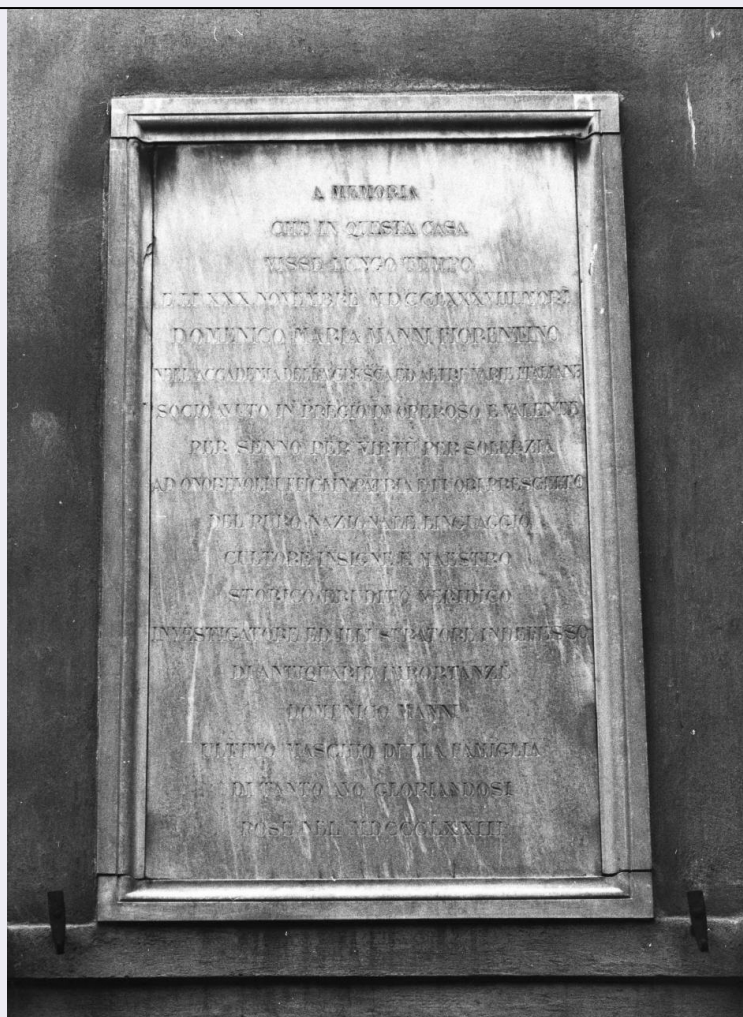 A MEMORIA
CHE IN QUESTA CASA
VISSE LUNGO TEMPO
E LI XXX NOVEMBRE MDCCLXXXVIII MORÌ
DOMENICO MARIA MANNI FIORENTINO
NELL'ACCADEMIA DELLA CRUSCA ED ALTRE VARIE ITALIANE
SOCIO AVUTO IN PREGIO DI OPEROSO E VALENTE
PER SENNO PER VIRTÙ PER SOLERZIA
AD ONOREVOLI UFFICI IN PATRIA E FUORI PRESCELTO
DEL PURO NAZIONALE LINGUAGGIO
CULTORE INSIGNE E MAESTRO
STORICO ERUDITO VERIDICO
INVESTIGATORE ED ILLUSTRATORE INDEFESSO
DI ANTIQUARIE IMPORTANZE
DOMENICO MANNI
ULTIMO MASCHIO DELLA FAMIGLIA
DI TANTO AVO GLORIANDOSI
POSE NEL MDCCCLXXIII